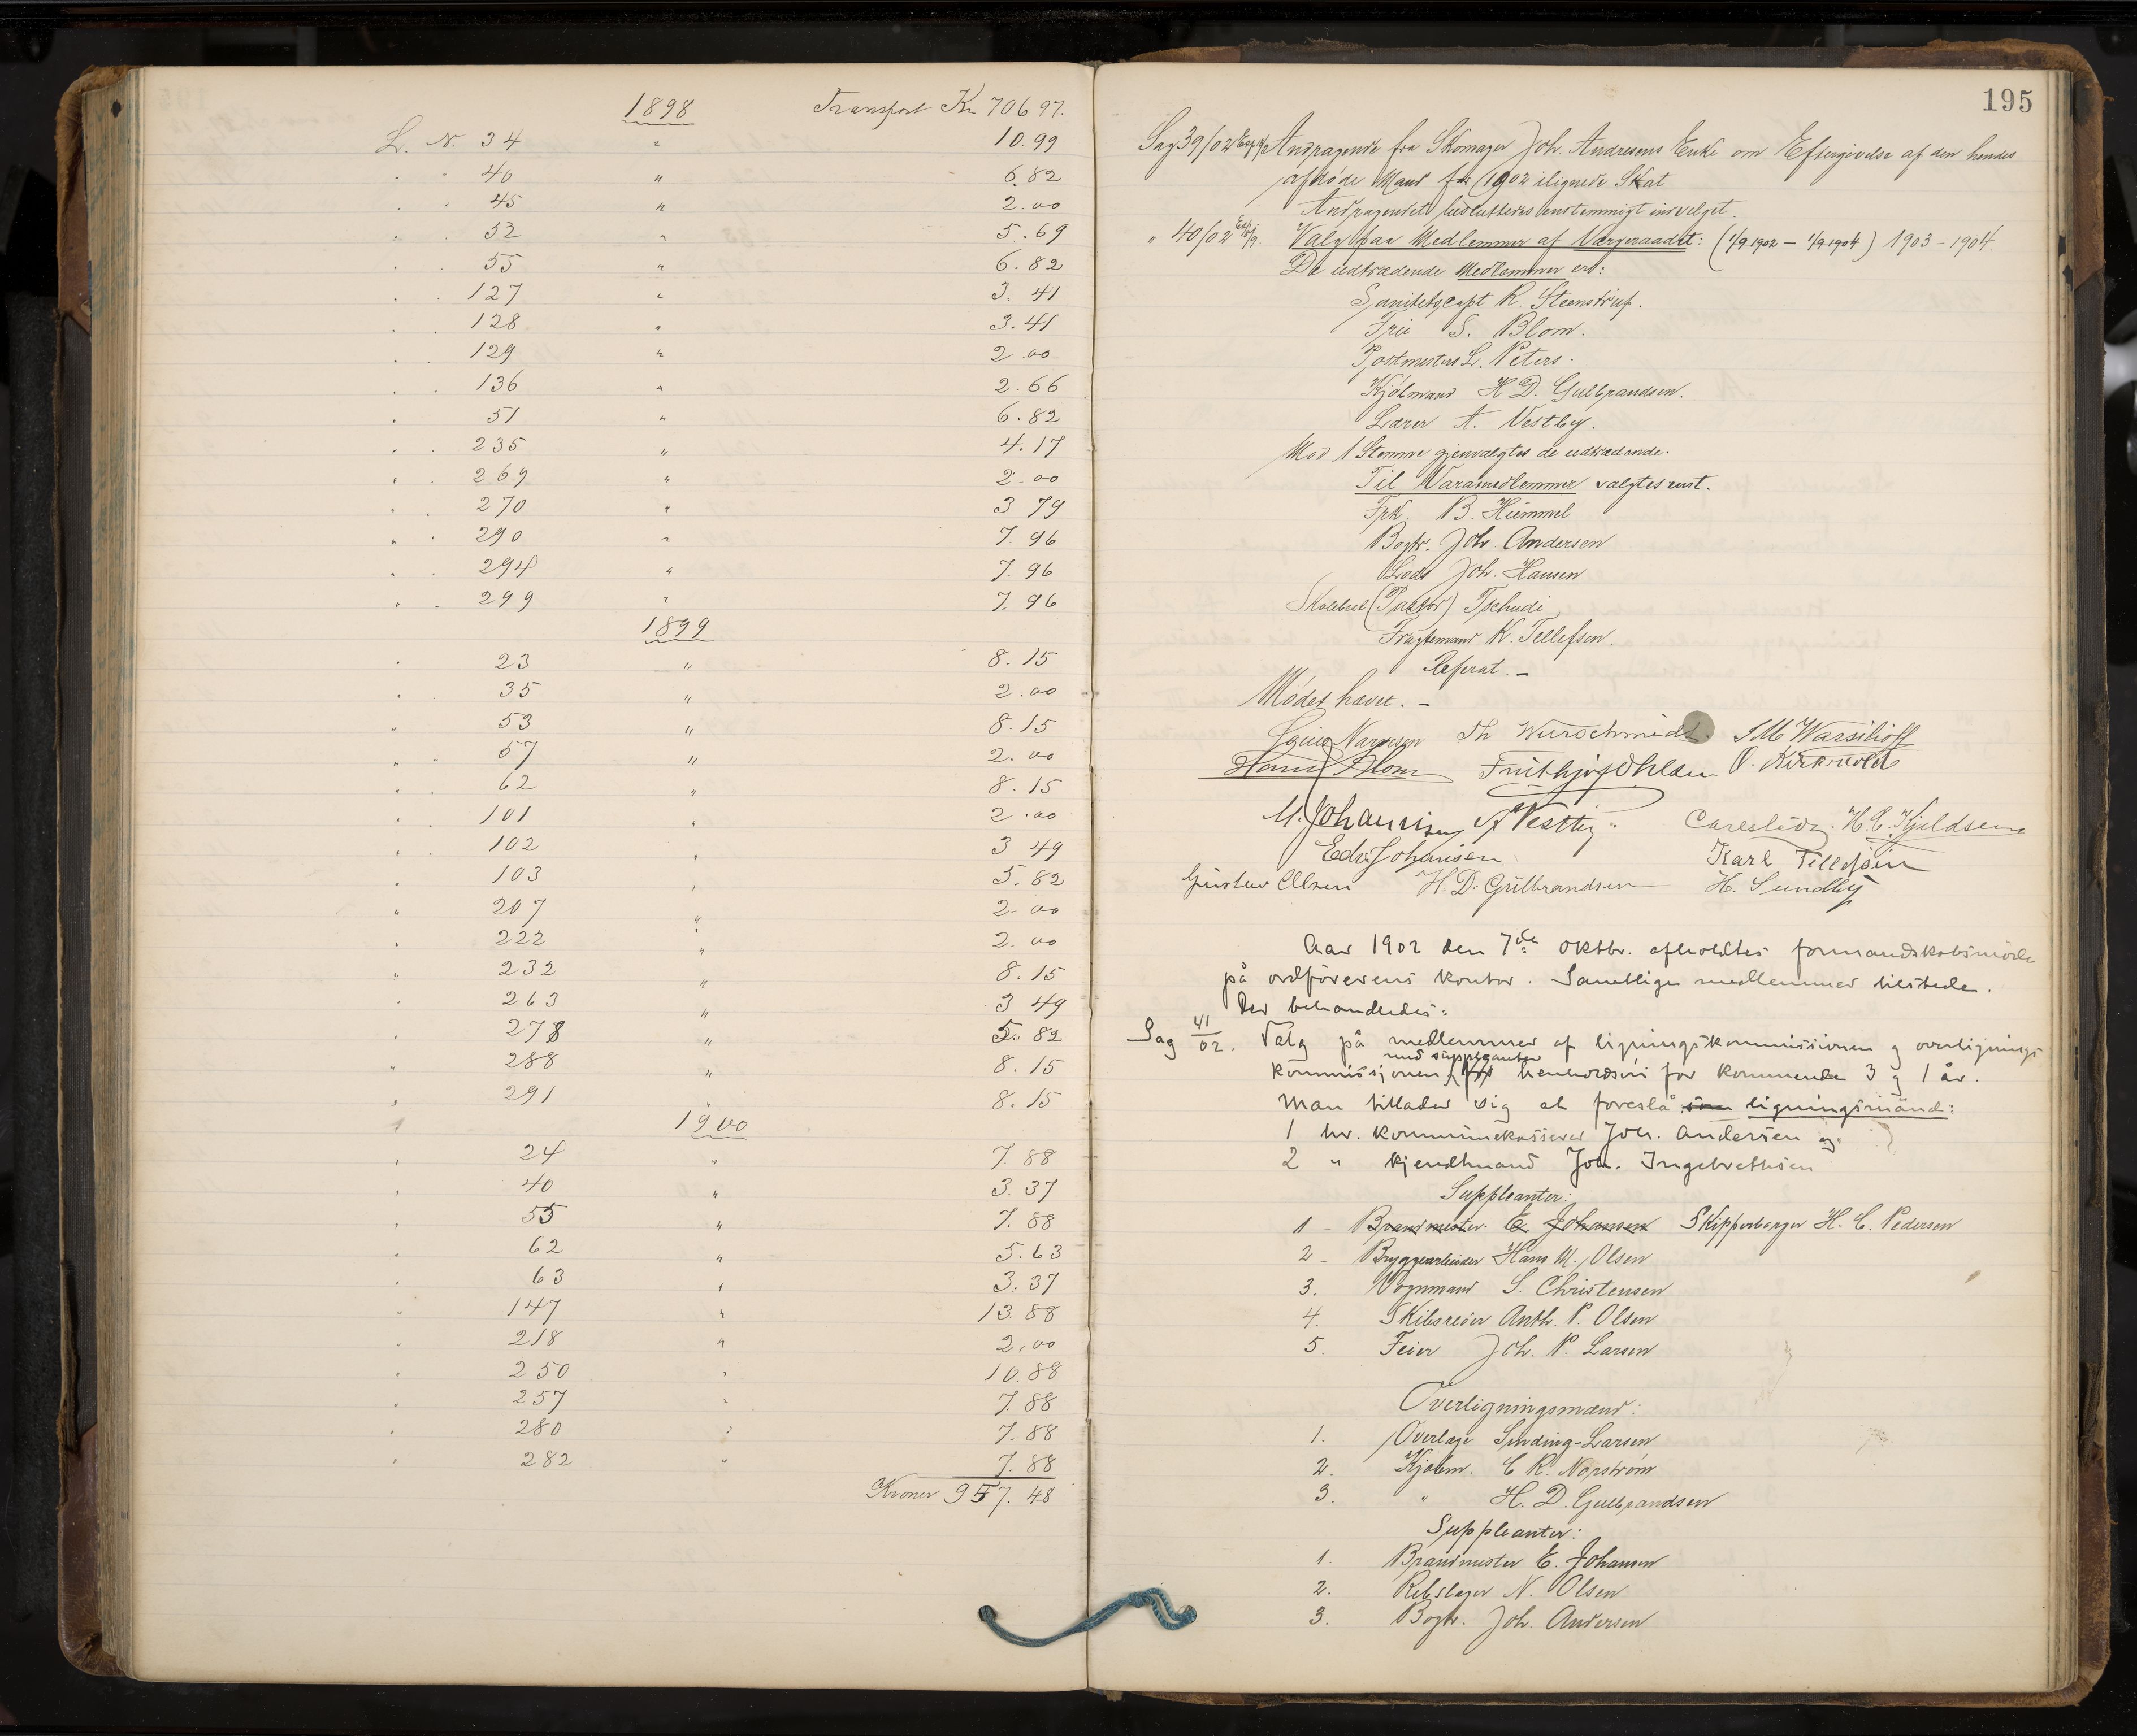 1898 Transport Kr. 706 97.
L. N. 34 " 10.99
" " 40 " 6.82
" " 45 " 2.00
" " 52 " 5.69
" " 55 " 6.82
" " 127 " 3.41
" " 128 " 3.41
" " 129 " 2.00
" " 136 " 2.66
" 51 " 6.82
" " 235 " 4.17
" " 269 " 2.00
" " 270 " 3 79
" " 290 " 7.96
" " 294 " 7.96
" " 299 " 7.96
1899
" 23 " 8.15
" " 35 " 2.00
" 53 " 8.15
" " 57 " 2.00
" " 62 " 8.15
" " 101 " 2.00
" " 102 " 3 49
" 103 " 5.82
" 207 " 2.00
" 222 " 2.00
" 232 " 8.15
" 263 " 3 49
" 278 " 5.82
" 288 " 8.15
" 291 " 8.15
1900
" 24 " 7.88
" 40 " 3.37
" 55 " 7.88
" 62 " 5.63
" 63 " 3.37
" 147 " 13.88
" 218 " 2,00
" 250 " 10.88
" 257 " 7.88
" 280 " 7.88
" 282 " 7.88
Kroner 957.48
195
Sag 39/02 Andragende fra Skomager Joh. Andresens Enke om Eftergivelse af den hendes
afdøde Mand for 1902 ilignede Skat
Andragendet besluttedes enstemmigt indvilget.
" 40/02 Valg paa Medlemmer af Værgeraadet: (1/9 1902 – 1/9 1904) 1903 – 1904.
De udtrædende Medlemmer er:
Sanitetscapt R. Steenstrup.
Fru S. Blom.
Postmester L. Peters.
Kjøbmand H D. Gulbrandsen.
Lærer A. Vestby.
Mod 1 Stemme gjenvalgtes de udtrædende.
Til Varamedlemmer valgtes enst.
Frk. B. Hümmel
Bogtr. Joh. Andersen
Lods Joh. Hansen
(Pastor) Tschudi
Fragtemand K. Tellefsen.
Referat. –
Mødet hævet. –
Th Wurschmidt.
Blom Frithjof Ohlsen O. Kirkevold
M. Johannisen A Vestby. H. C. Kjeldsen
Edv. Johansen Karl Tellefsen
Gustav Olsen H. D. Gulbrandsen H. Sundby
Aar 1902 den 7de oktbr. afholdtes formandskabsmøde
på ordførerens kontor. Samtlige medlemmer tilstede.
Der behandledes:
Sag 41/02. Valg på medlemmer af ligningskommissionen og overlignings
med suppleanter
kommissjonen henholdsvis for kommende 3 og 1 år.
Man tillader sig at foreslå som ligningsmænd:
1 hr. kommunekasserer Joh. Andersen og
2 " kjøbmand Joh. Ingebrethsen
Suppleanter:
1 – Brandmester E. Johansen Skipperborger H. C. Pedersen
2 – Bryggearbeider Hans M. Olsen
3. Vognmand S. Christensen
4. Skibsreder Anth. P. Olsen
5. Feier Joh. P. Larsen
Overligningsmænd:
1. Overlæge Sinding-Larsen
2. Kjøbm. C R. Norstrøm
3. " H. D. Gulbrandsen
Suppleanter:
1. Brandmester E. Johansen
2. Rebslager N. Olsen
3. Bogtr. Joh. Andersen